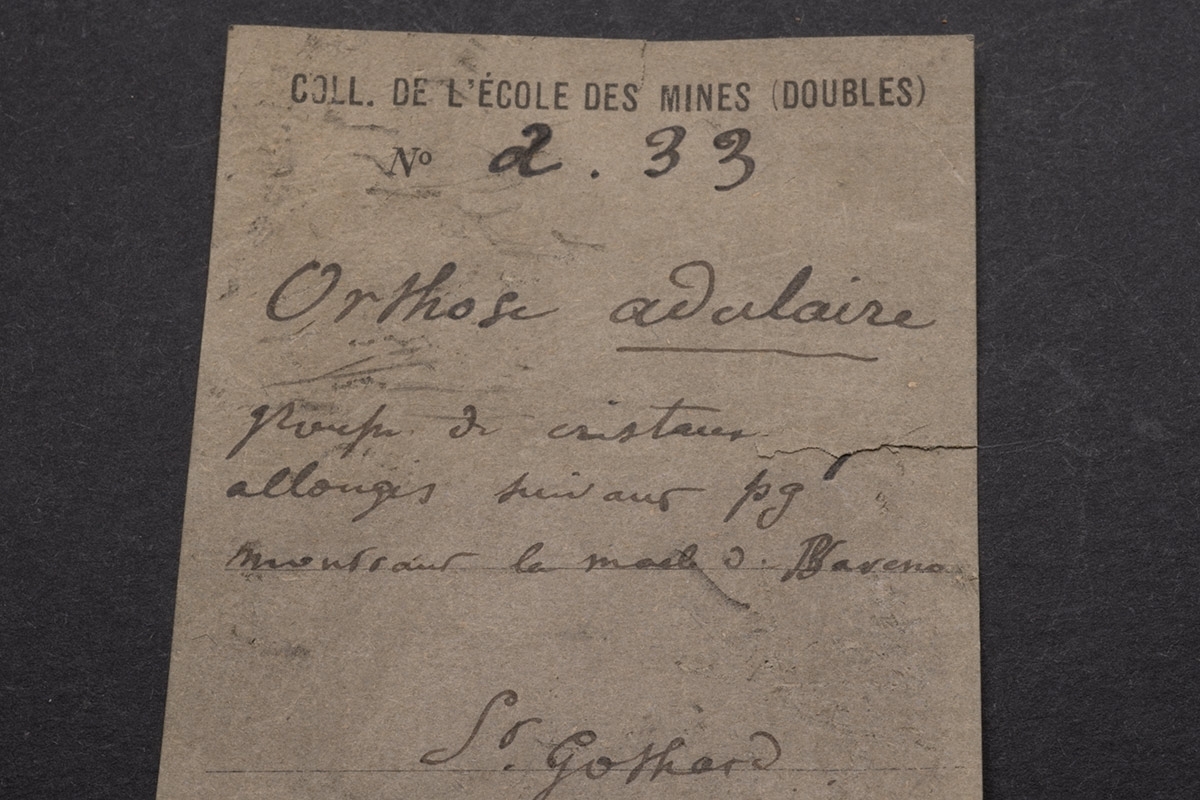 COLL. DE L'ÉCOLE DES MINES (DOUBLES)
Nº 2.33
Orthose adulaire
groupe de cristaux
allongés suivant pg
montrant la macle d. Baveno
St. Gothard